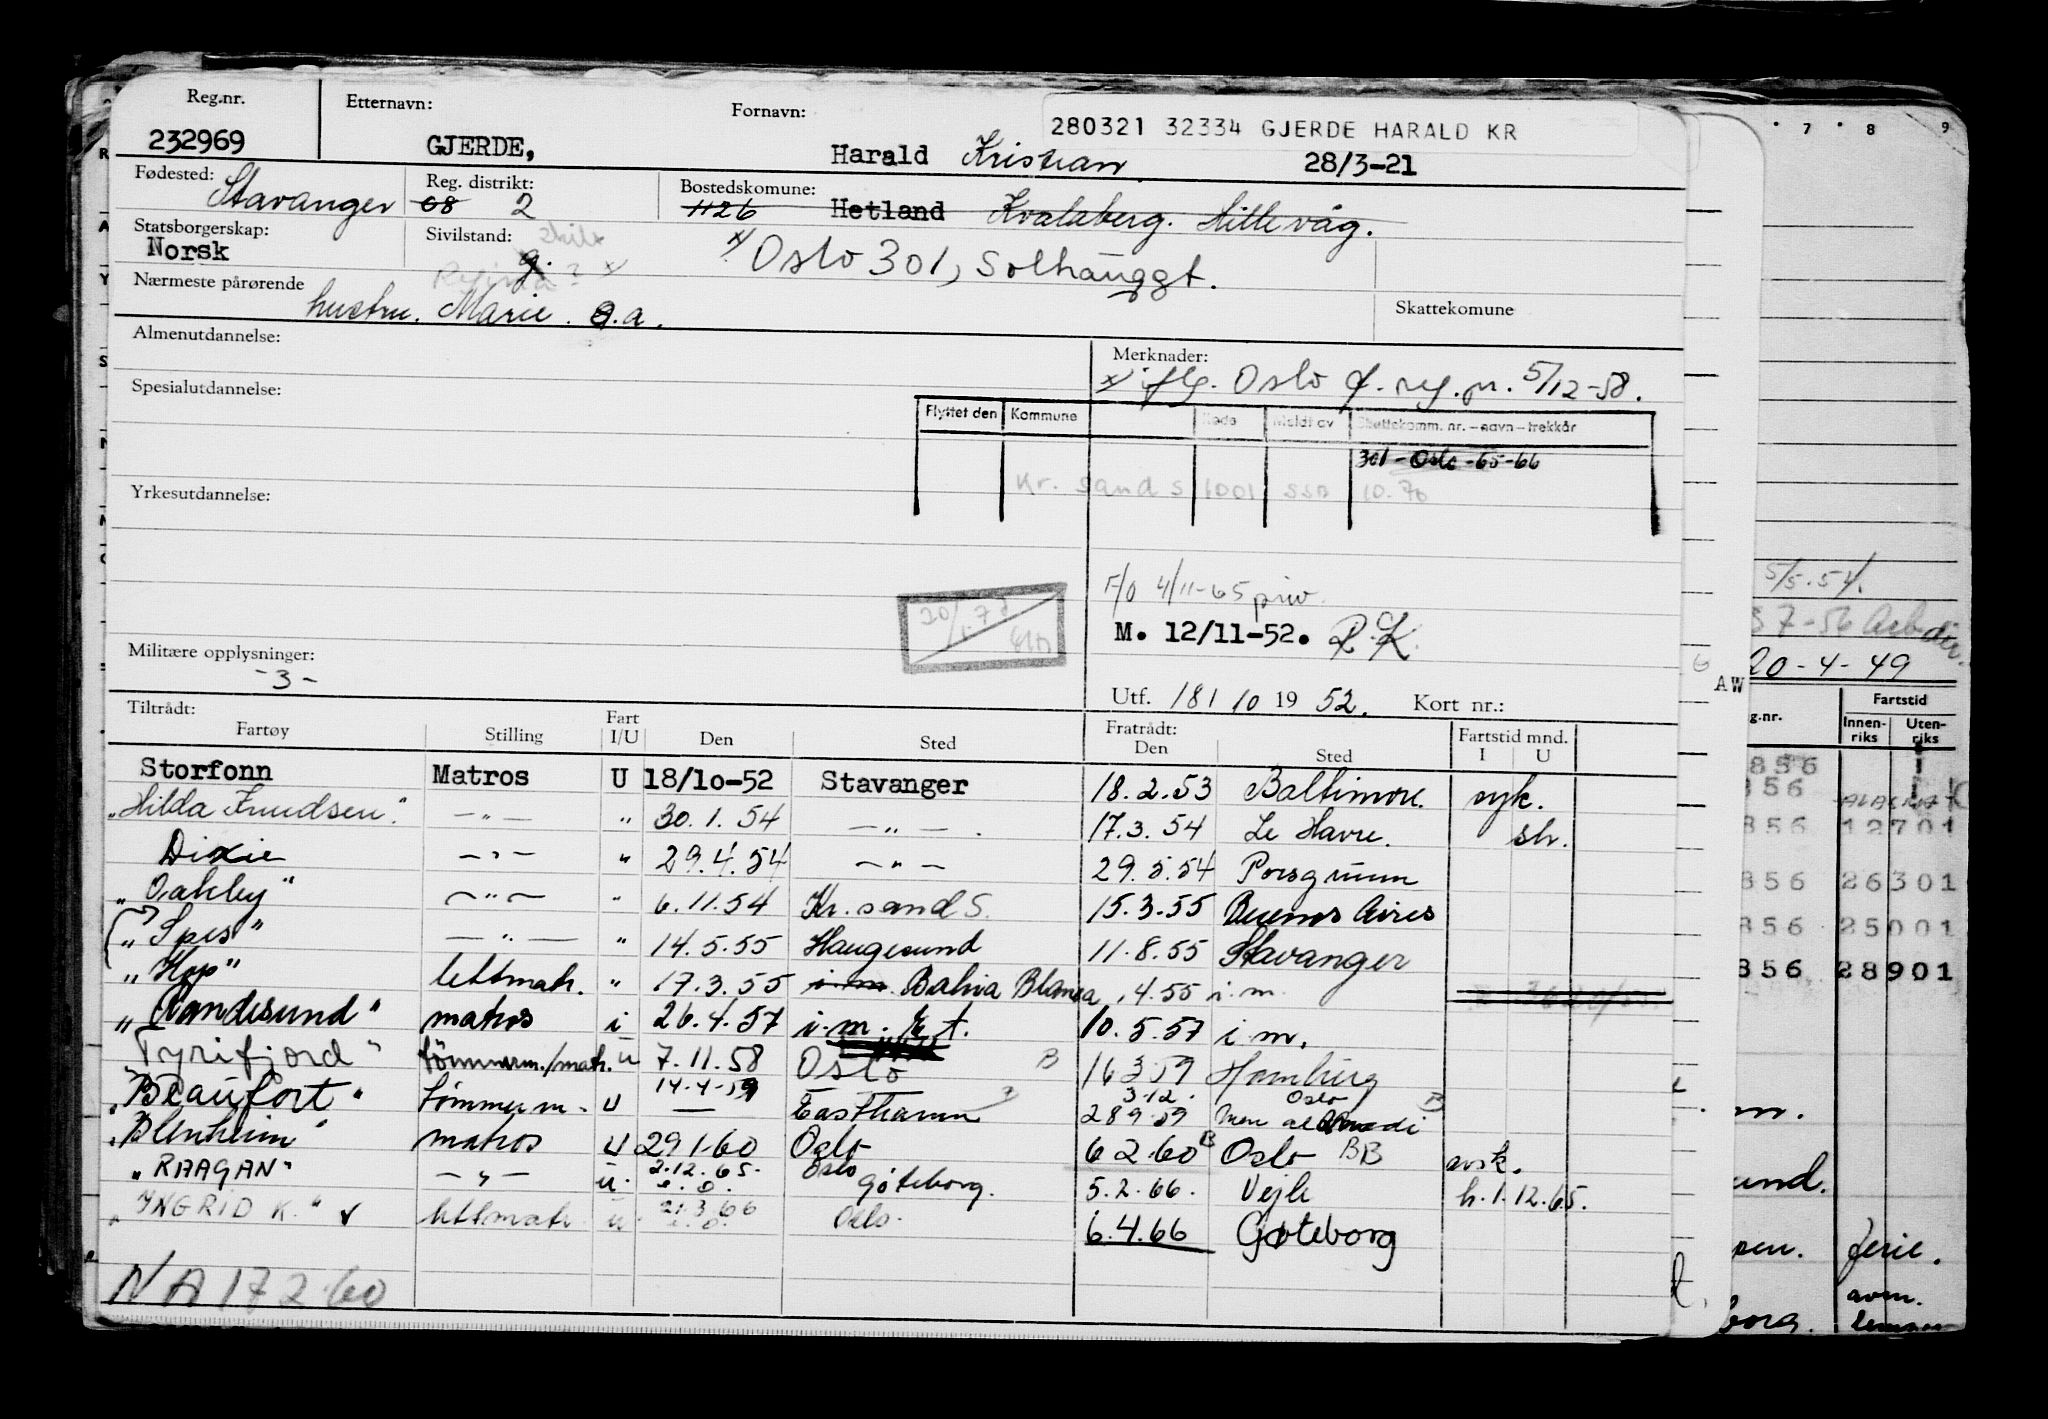 Reg.nr. Etternavn: Fornavn: 280321 32334 GJERDE HARALD KR
232969 GJERDE, Harald Kristian 28/3-21
Fødested: Reg. distrikt: Bostedskomune:
Stavanger 08 2 1126 Hetland Kvalaberg. Hillevåg.
Statsborgerskap: Sivilstand: skilt
Norsk g. x/ Oslo 301, Solhauggt.
Nærmeste pårørende
hustru. Marie s.a. Skattekomune
Almenutdannelse: Merknader:
x/ iflg. Oslo f. reg. pr. 5/12-58.
Spesialutdannelse:
Flyttet den Kommune Kode Meldt av Skattekomm. nr.-navn-trekkår
301-Oslo-65-66
Yrkesutdannelse: Kr. sand S 1001 SSB 10.70
F/O 4/11-65 priv.
M. 12/11-52. R.K.
Militære opplysninger:
-3-
Utf. 18/ 10 19 52. Kort nr.:
Tiltrådt: Fratrådt:
Fartøy Stilling Fart I/U Den Sted Den Sted Fartstid mnd. I U
Storfonn Matros U 18/10-52 Stavanger 18.2.53 Baltimore. syk.
"Hilda Knudsen". -"- " 30.1.54 -"- . 17.3.54 Le Havre. str.
Dixie -"- " 29.4.54 -"- 29.5.54 Porsgrunn
"Oakley" -"- " 6.11.54 Kr. sand S. 15.3.55 Buenos Aires
"Spes" -"- " 14.5.55 Haugesund 11.8.55 Stavanger
"Hop" lettmatr. " 17.3.55 i.m. Bahia Blanca .4.55 i.m.
"Randesund" matros i 26.4.57 i.m. 10.5.57 i.m.
Tyrifjord" tömmerm./matr. u 7.11.58 Oslo B 16 3 59 Hamburg
"Beaufort" tömmerm. U 14.4.59 Eastham 3.12. Oslo B
28 9 59
"Blenheim" matros U 29 1.60 Oslo 6 2.60 B Oslo BB avsk.
"RAAGAN" -"- u. 2.12.65. Oslo Göteborg. 5.2.66. Vejle h.1.12.65.
"INGRID K." lettmatr. u 21.3.66 Oslo. 6.4.66 Gøteborg
NA 172 60
7 8 9
5/5.54.
20-4-49
AW
g.nr. Fartstid
Innenriks Utenriks
856
856
856 12701
856 26301
856 25001
856 28901
und.
sen. ferie.
avm.
borg.